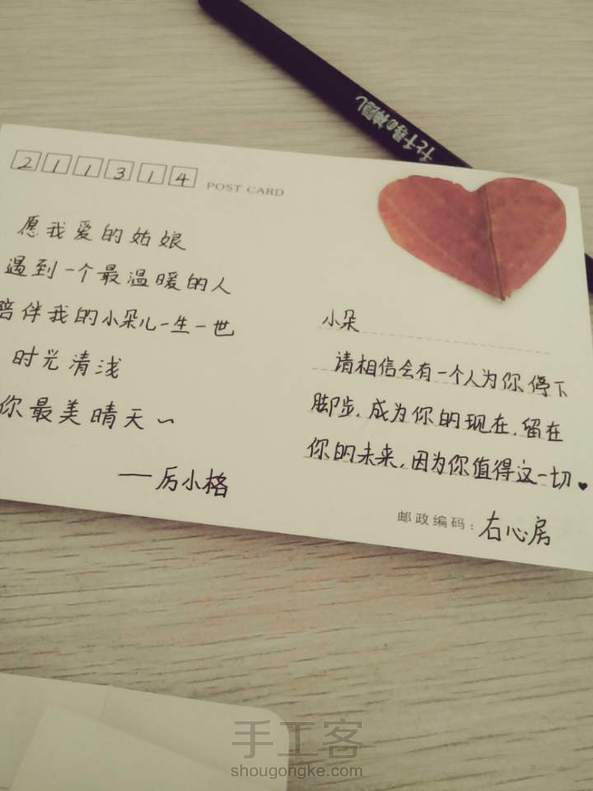 211314
POST CARD
愿我爱的姑娘
遇到一个最温暖的人
陪伴我的小朵儿一生一世
时光清浅
你最美晴天~
——厉小格
小朵
请相信会有一个人为你停下
脚步,成为你的现在,留在
你的未来,因为你值得这一切♥
邮政编码:右心房
千与千寻の神隐し
手工客
shougongke.com